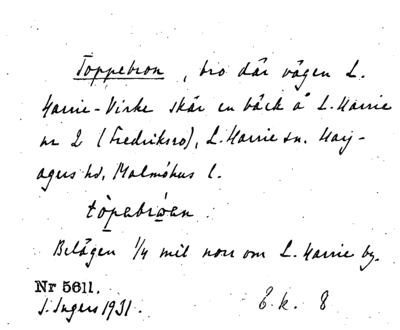 Toppebron, bro där vägen L.
Harrie-Virke skär en bäck å L. Harrie
nr 2 (Fredriksro), L. Harrie sn. Harj-
agers hd, Malmöhus l.
tòpabrꙍen
Belägen 1/4 mil norr om L. Harrie by.
Nr 5611.
J. Ingers 1931.
E. k. 8